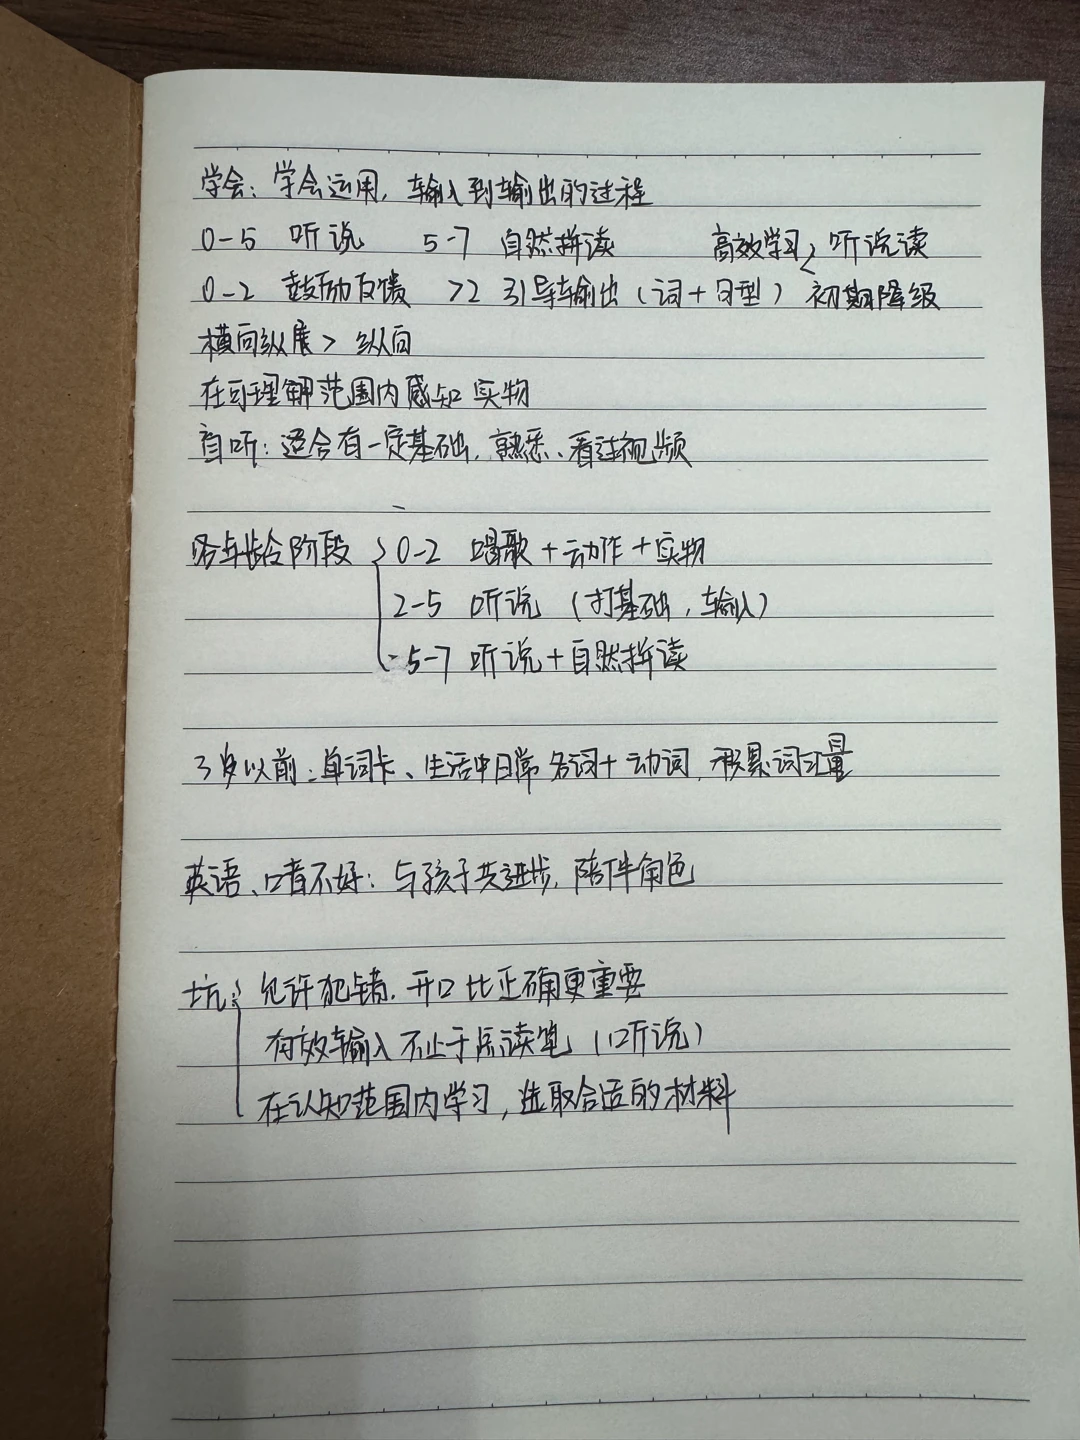 学会：学会运用，输入到输出的过程
0-5 听说 5-7 自然拼读 高效学习 听说读
0-2 鼓励反馈 >2 引导输出（词+句型） 初期降级
横向纵展 > 纵向
在可理解范围内感知 实物
盲听：适合有一定基础，熟悉、看过视频
各年龄阶段 0-2 唱歌+动作+实物
2-5 听说（打基础，输入）
5-7 听说+自然拼读
3岁以前：单词卡、生活中日常 名词+动词，积累词汇量
英语、口音不好：与孩子共进步，陪伴角色
坑： 允许犯错，开口比正确更重要
有效输入不止于点读笔（听说）
在认知范围内学习，选取合适的材料